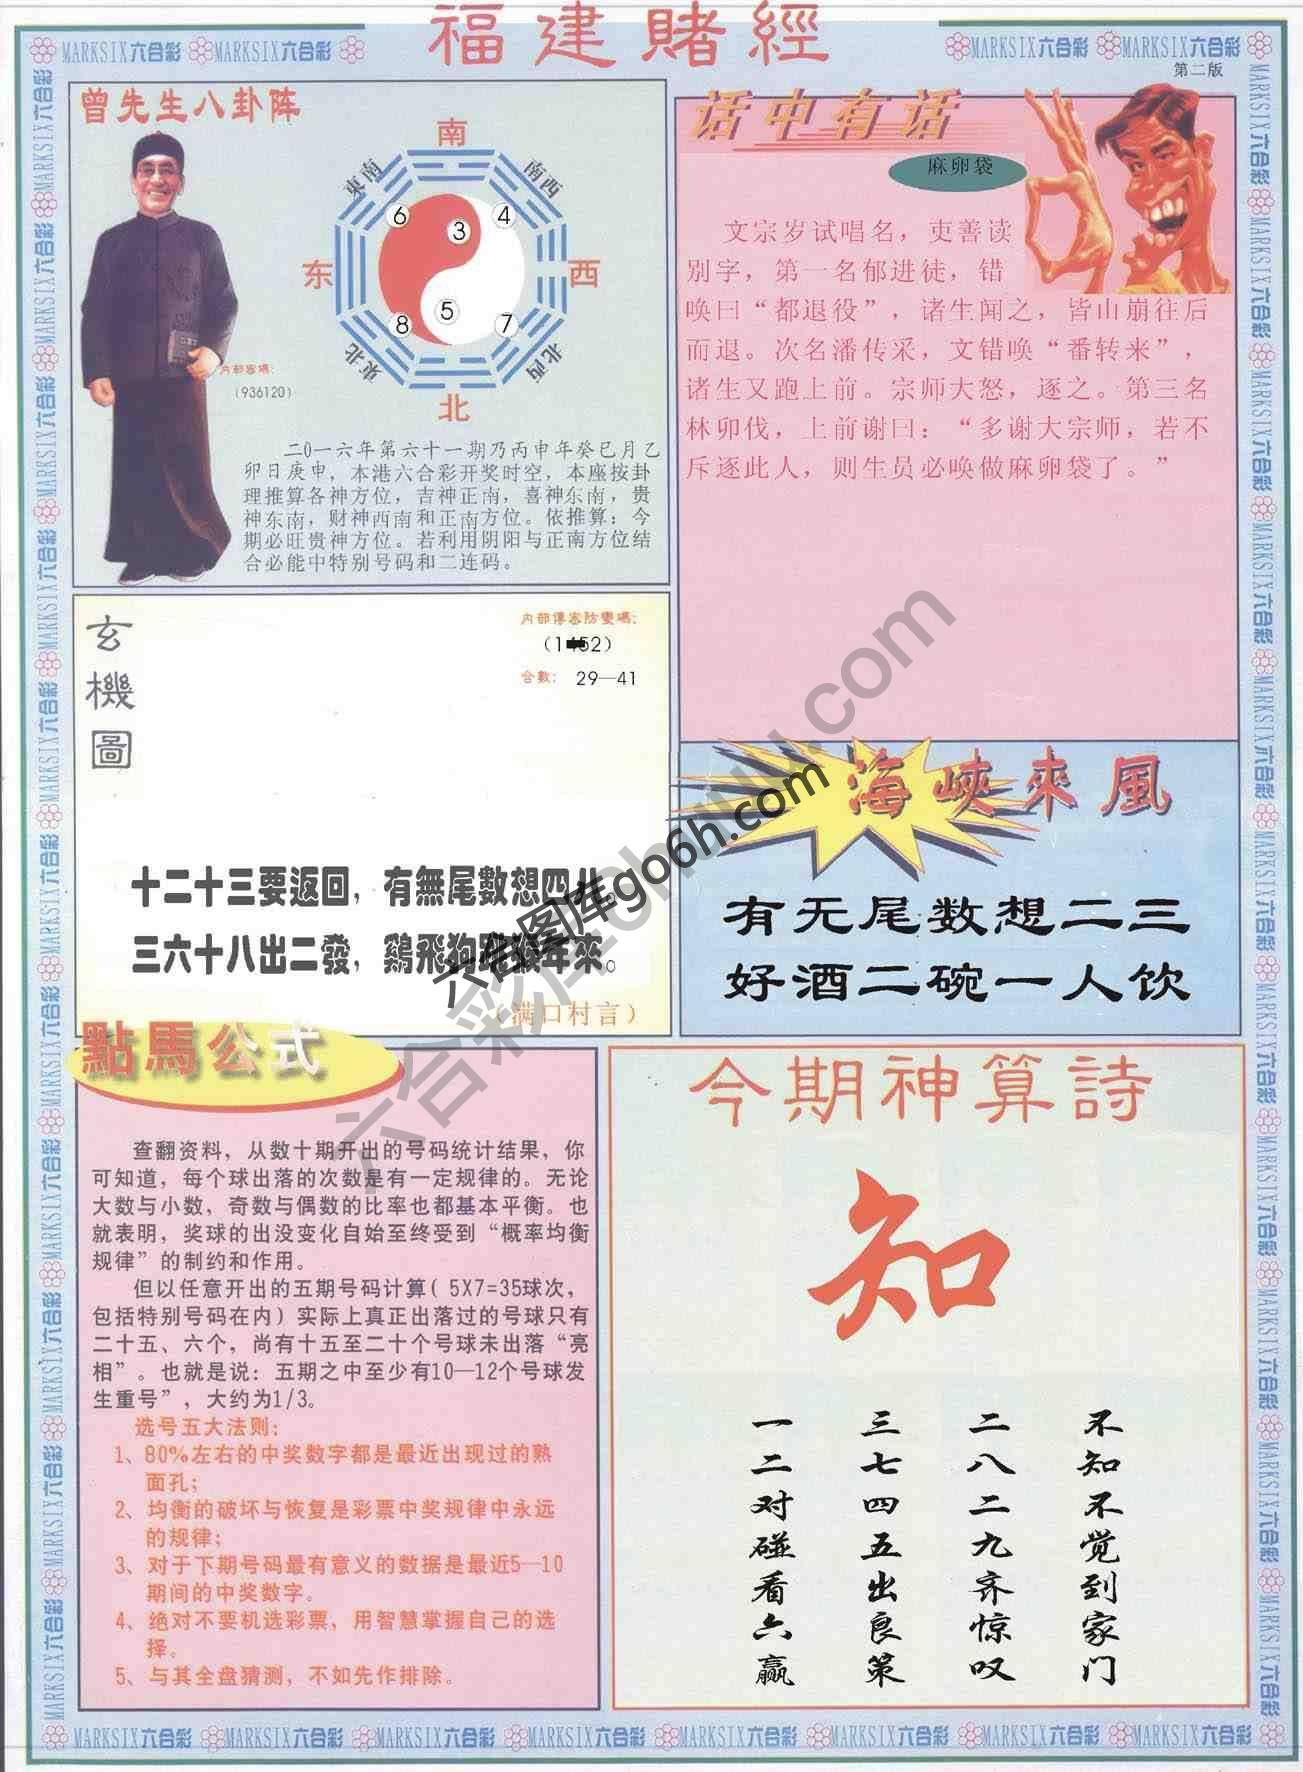 福建賭經
MARKSIX六合彩 MARKSIX六合彩 MARKSIX六合彩 MARKSIX六合彩
第二版
曾先生八卦阵
南
東南
南西
6
3
4
东
西
5
8
7
東北
北西
北
内部密碼:
(936120)
二0一六年第六十一期乃丙申年癸巳月乙
卯日庚申，本港六合彩开奖时空，本座按卦
理推算各神方位，吉神正南，喜神东南，贵
神东南，财神西南和正南方位。依推算：今
期必旺贵神方位。若利用阴阳与正南方位结
合必能中特别号码和二连码。
话中有话
麻卵袋
文宗岁试唱名，吏善读
别字，第一名郁进徒，错
唤曰“都退役”，诸生闻之，皆山崩往后
而退。次名潘传采，文错唤“番转来”，
诸生又跑上前。宗师大怒，逐之。第三名
林卯伐，上前谢曰：“多谢大宗师，若不
斥逐此人，则生员必唤做麻卵袋了。”
玄機圖
内部傳密防變碼:
合數: 29—41
十二十三要返回，有無尾數想四八。
三六十八出二發，鷄飛狗跳猴年來。
（满口村言）
海峽來風
有无尾数想二三
好酒二碗一人饮
六合图库go6h.com
點馬公式
查翻资料，从数十期开出的号码统计结果，你
可知道，每个球出落的次数是有一定规律的。无论
大数与小数，奇数与偶数的比率也都基本平衡。也
就表明，奖球的出没变化自始至终受到“概率均衡
规律”的制约和作用。
但以任意开出的五期号码计算( 5X7=35球次，
包括特别号码在内）实际上真正出落过的号球只有
二十五、六个，尚有十五至二十个号球未出落“亮
相”。也就是说：五期之中至少有10—12个号球发
生重号”，大约为1/3。
选号五大法则：
1、80%左右的中奖数字都是最近出现过的熟
面孔；
2、均衡的破坏与恢复是彩票中奖规律中永远
的规律；
3、对于下期号码最有意义的数据是最近5—10
期间的中奖数字。
4、绝对不要机选彩票，用智慧掌握自己的选
择。
5、与其全盘猜测，不如先作排除。
今期神算詩
知
不知不觉到家门
二八二九齐惊叹
三七四五出良策
一二对碰看六赢
MARKSIX六合彩 MARKSIX六合彩 MARKSIX六合彩 MARKSIX六合彩 MARKSIX六合彩 MARKSIX六合彩 MARKSIX六合彩 MARKSIX六合彩